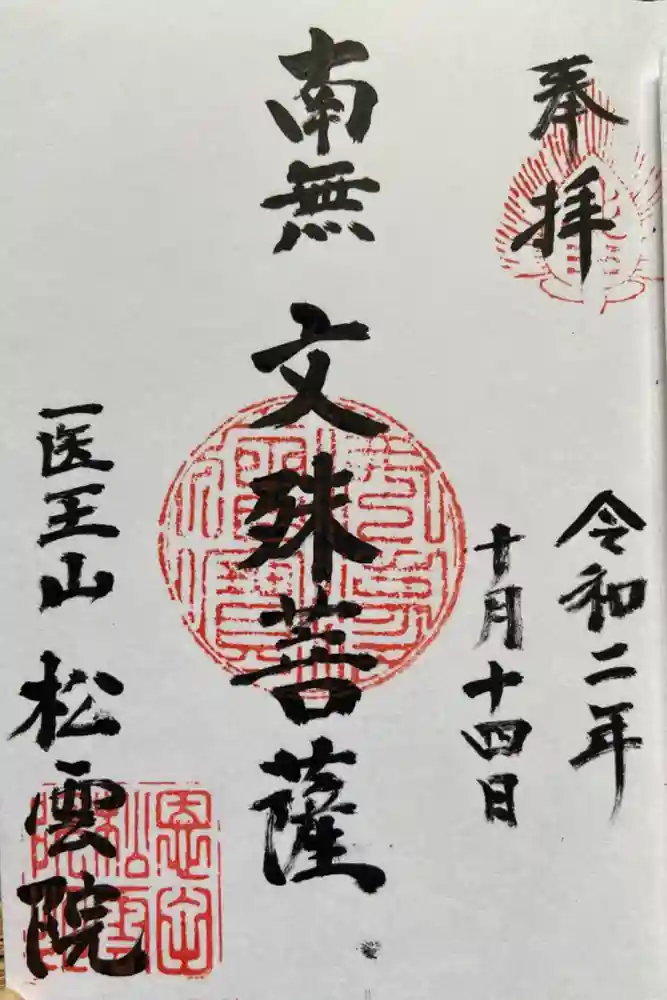 奉拝
令和二年
十月十四日
南無 文殊菩薩
医王山 松雲院